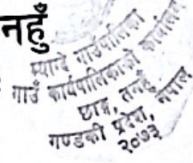 नहुँ
म्याग्दे गाउँपालिका
गाउँ कार्यपालिकाको कार्यालय
छाब्दी, तनहुँ
गण्डकी प्रदेश, नेपाल
२०७३